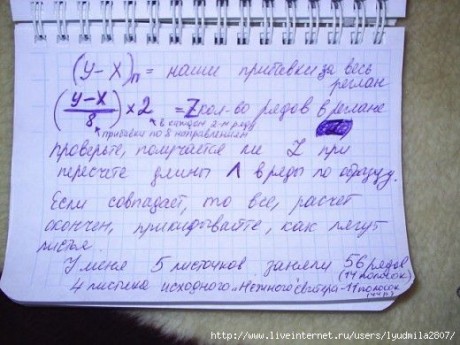 (У-Х)п = наши прибавки за весь
реглан
(У-Х / 8) × 2 = Z кол-во рядов в реглане
в каждом 2-м ряду
прибавки по 8 направлениям
Проверьте, получается ли Z при
пересчете длины Л в ряды по образцу.
Если совпадает, то все, расчет
окончен, прикидывайте, как лягут
листья.
У меня 5 листочков заняли 56 рядов
(14 полосок)
4 листика исходного "Нежного" свитера - 11 полосок
http://www.liveinternet.ru/users/lyudmila2807/